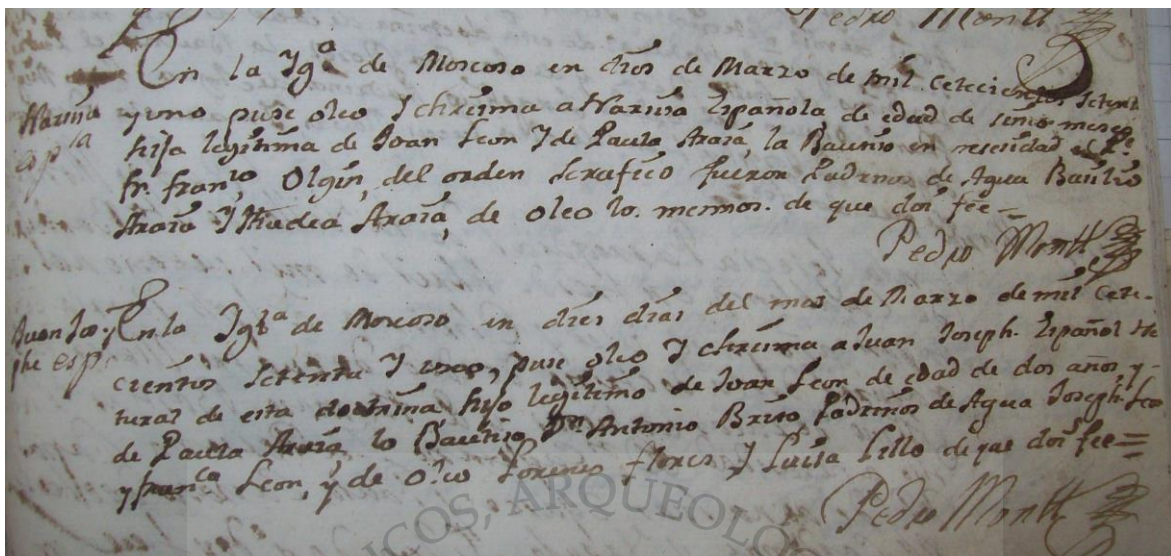 Pedro Montt
En la Yg.ª de Morcoso en dies de Marzo de mil cetecientos setent
Narsisa
esp.la
y uno puse oleo Y chrisma a Narsisa Española, de edad de sinco meses
hija legitima de Joan Leon Y de Paula Araia, la Bautiso en nesesidad el P.e
fr. fran.co Olgin, del orden Serafico fueron Padrinos de Agua Basilio
Araia Y Thadea Araia, de oleo lo. mesmos. de que doi fee=
Pedro Montt
Juan Jos.
phe esp.
En la Yglª de Morcoso en dies dias del mes de Marzo de mil Cete-
cientos Setenta Y uno, puse oleo Y chrisma a Juan Joseph. Español Na
tural de esta doctrina hijo legitimo de Joan Leon de edad de dos años, y-
de Paula Araia lo Bautiso D.n Antonio Brito Padrinos de Agua Joseph Leon
y fran.ca Leon, y de oleo Lorenso flores Y Luisa Lillo de que doi fee=
Pedro Montt
COS, ARQUEOLO